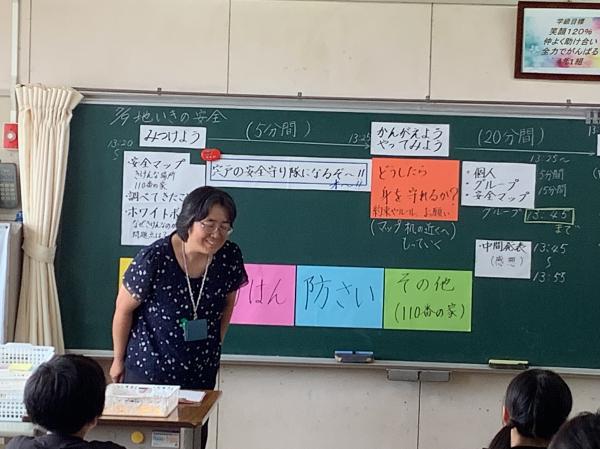 学級目標
笑顔120%
仲よく助け合い
全力でがんばる
4年1組
地いきの安全
13:20
みつけよう
(5分間)
13:25
かんがえよう
やってみよう
(20分間)
・安全マップ
きけんな場所
110番の家
・調べてきたこ
・ホワイトボ
なぜきけんなのか
問題点は?
宍戸の安全守り隊になるぞ〜!!
どうしたら
身を守れるか?
約束やルール、お願い
(マップ机の近くへ)
もっていく
・個人
・グループ
・安全マップ
13:25〜
5分間
15分間
グループ
13:45
まで
・中間発表
(感想)
13:45
13:55
はん
防さい
その他
(110番の家)